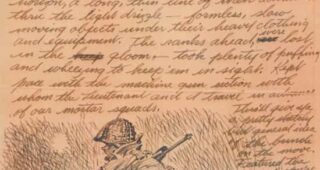 a long, thin line of men
thru the light drizzle - formless, slow
moving objects under their heavy clothing
and equipment. The ranks ahead were lost
in the gloom - took plenty of puffing
and wheezing to keep 'em in sight. Kept
pace with the machine gun section with
whom the Lieutenant and I travel in advance
of our mortar squads.
This'll give you
a pretty sketchy
general idea
of the bundle
on the
move.
Featured the